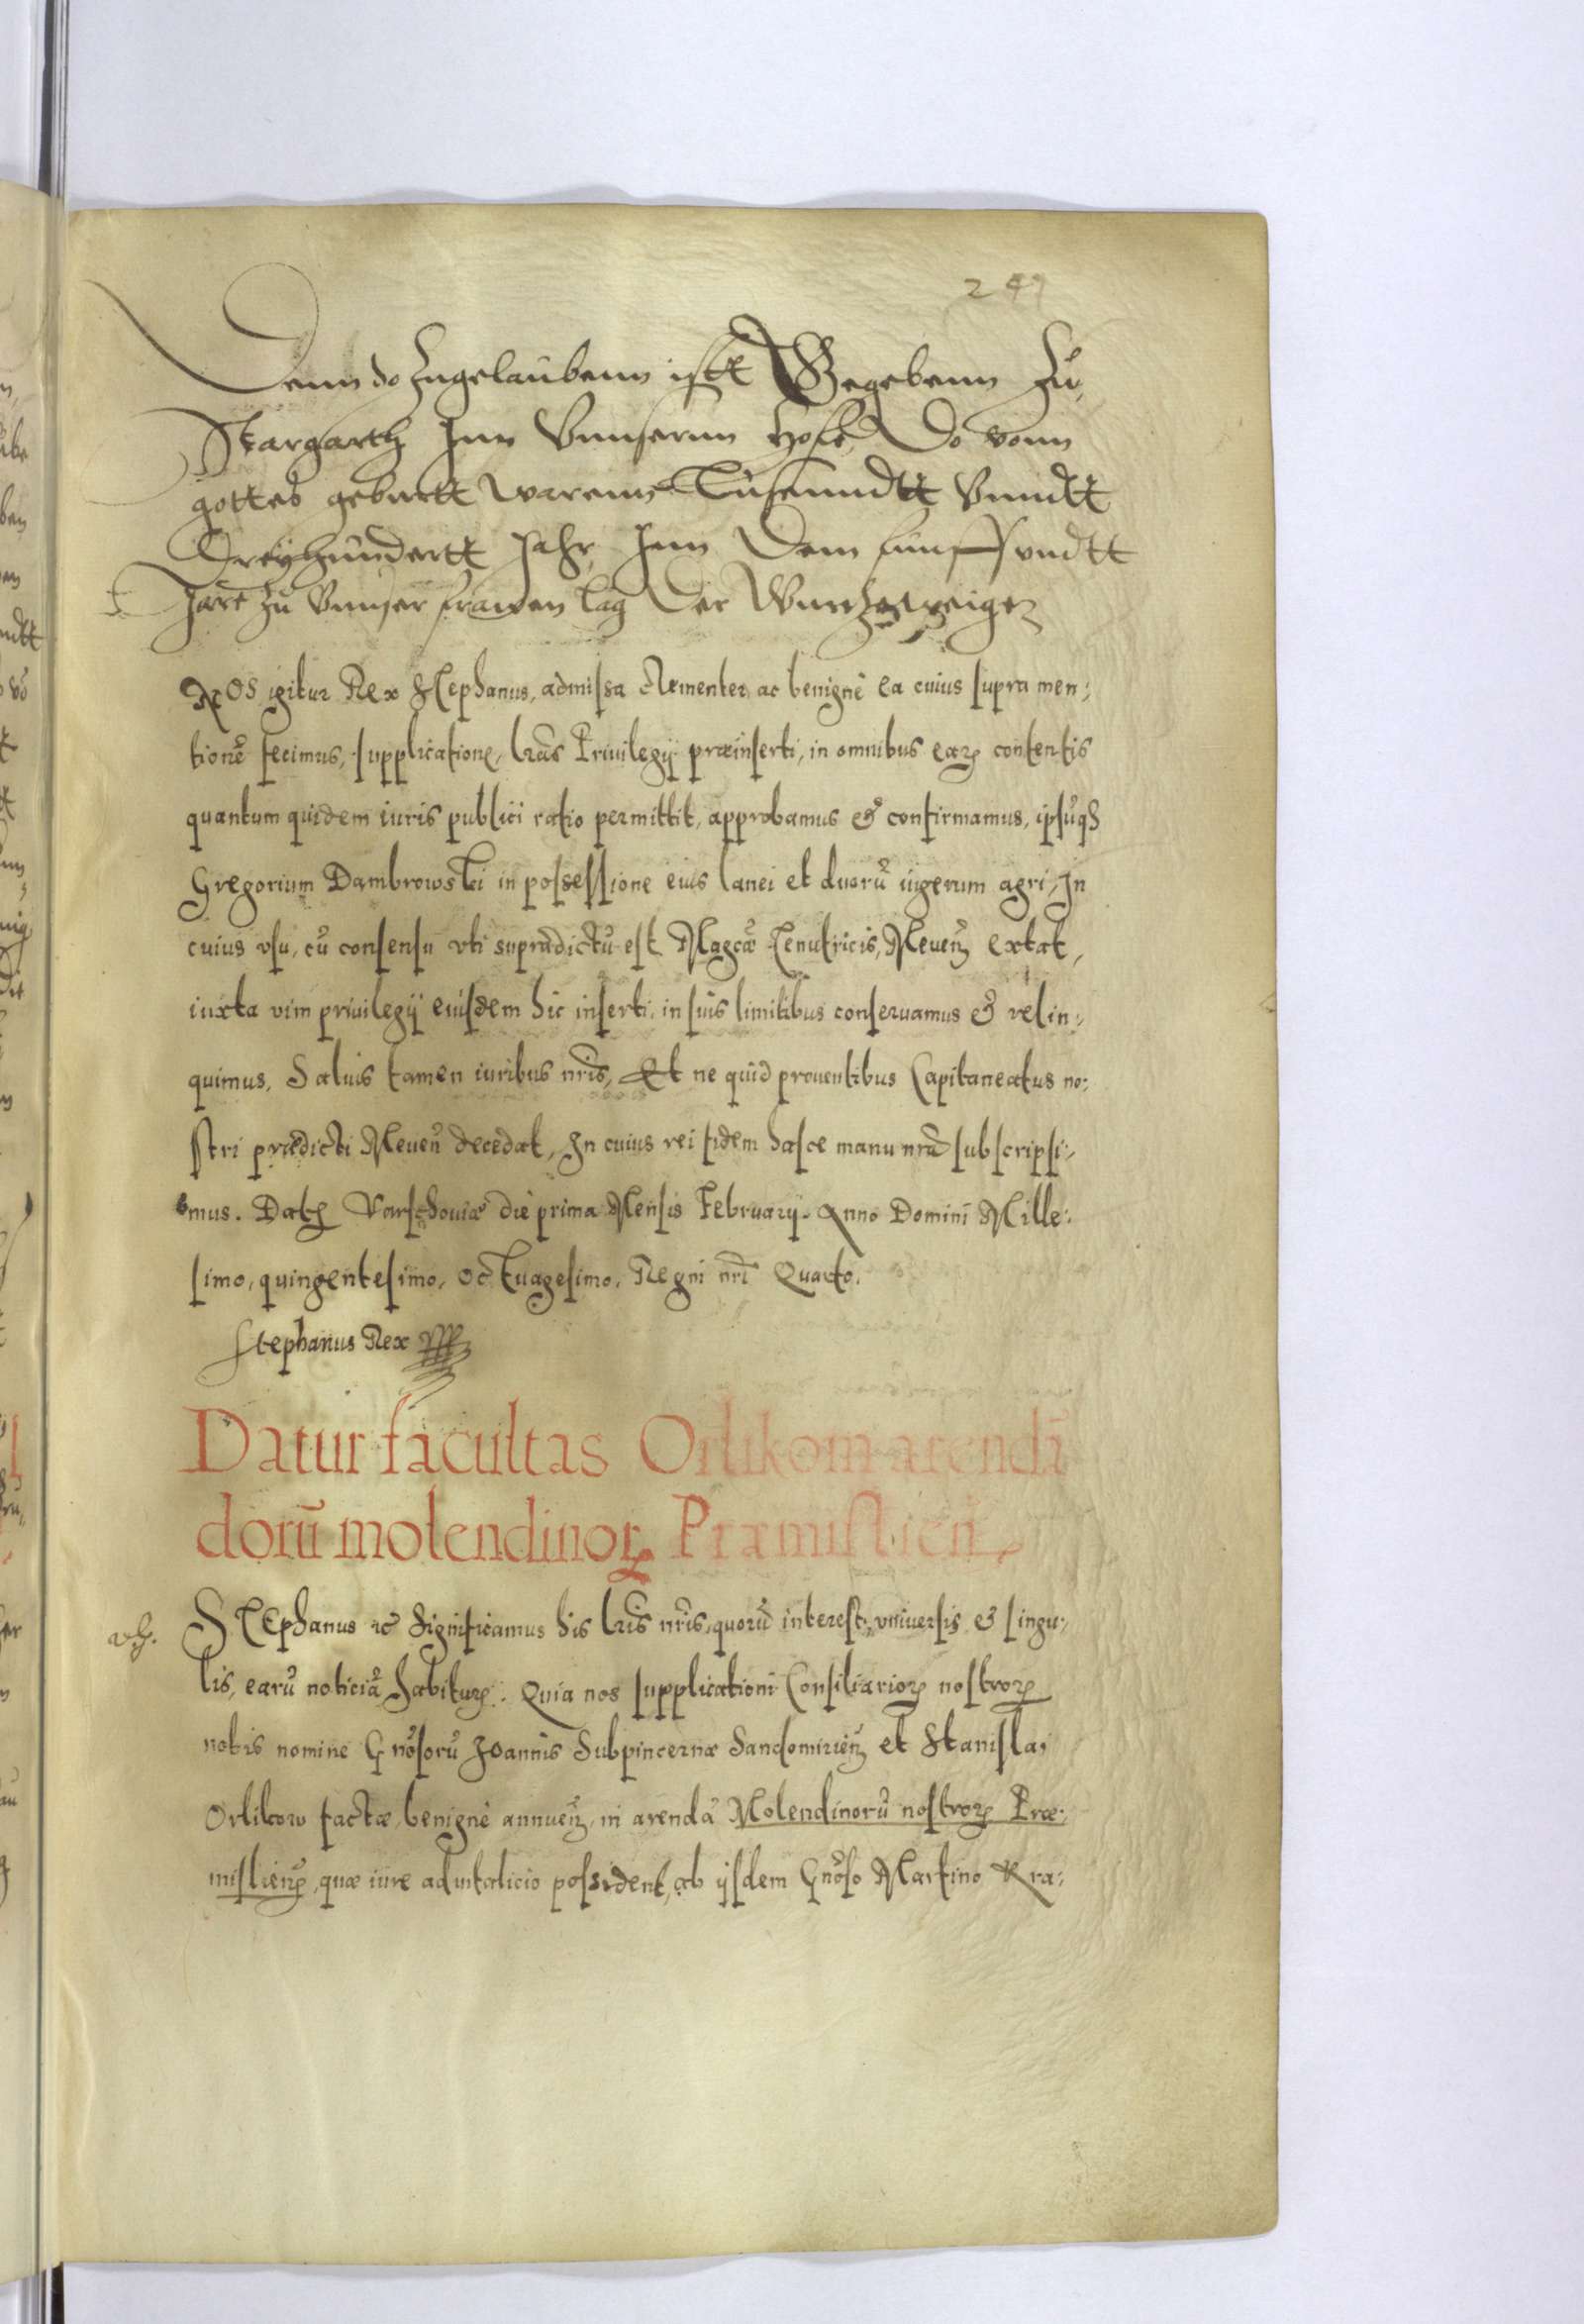 249
Denn do Zugelaubenn istt Gegebenn Zu
Stargarth Inn Vnnsernn Hofe, Do vonn
gottes geburtt warenn Tusenndtt Vnndtt
Dreyhundertt Jahr, Inn Dem funff vndtt
Jare zu Vnnser frawen tag Der Wurtzeweigen
NOS igitur Rex Stephanus, admissa clementer ac benignè ea cuius supra men:
tionẽ fecimus, supplicatione, lrãs Priuilegij præinserti, in omnibus earꝫ contentis
quantum quidem iuris publici ratio permittit, approbamus & confirmamus, ipsũqꝫ
Gregorium Dambrowski in possessione eius lanei et duorũ iugerum agri, In
cuius vsu, cũ consensu vti supradictũ est Magcæ Tenutricis, Meueñ extat,
iuxta vim priuilegij eiusdem hic inserti, in suis limitibus conseruamus & relin:
quimus, Saluis tamen iuribus nrĩs, Et ne quid prouentibus Capitaneatus no:
stri prædicti Meueñ decedat, In cuius rei fidem hasce manu nrã subscripsi:
mus. Datꝫ Varschouiæ die prima Mensis February. Anno Domini Mille:
simo, quingentesimo, Octuagesimo, Regni nrĩ Quarto.
Stephanus Rex
Datur facultas Orlikom arendã
dorũ molendinorꝫ Præmislieñ
STEphanus ec Significamus his lrĩs nrĩs, quorũ interest, vniuersis & singu:
lis, earũ noticiã habiturꝫ. Quia nos supplicationi Consiliariorꝫ nostrorꝫ
nobis nomine Gnõsorũ Joannis Subpincernæ Sandomirieñ et Stanislai
Orlikow factæ, benignè annueñ, in arendã Molendinorũ nostrorꝫ Præ:
mislieñ, quæ iure aduitalicio possident, ab ijsdem Gnõso Martino Kra: